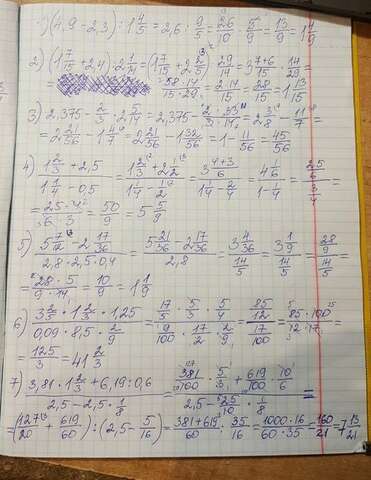 1) (4,9 - 2,3) : 1 4/5 = 2,6 · 5/9 = 26/10 · 5/9 = 13/9 = 1 4/9
2) (1 7/15 + 2,4) : 2 1/14 = (1 7/15 + 2 2/5) : 29/14 = 3 7+6/15 · 14/29 =
= 58·14/15·29 = 2·14/15 = 28/15 = 1 13/15
3) 2,375 - 2/3 · 2 5/14 = 2,375 - 2·33/3·14 = 2 3/8 - 11/7 =
= 2 21/56 - 1 4/7 = 2 21/56 - 1 32/56 = 1 - 11/56 = 45/56
4) 1 2/3 + 2,5 / 1 1/4 - 0,5 = 1 2/3 + 2 1/2 / 1 1/4 - 1/2 = 3 4+3/6 / 1 1/4 - 2/4 = 4 1/6 / 1 - 1/4 = 25/6 / 3/4
= 25·4/6·3 = 50/9 = 5 5/9
5) 5 7/12 - 2 17/36 / 2,8·2,5·0,4 = 5 21/36 - 2 17/36 / 2,8 = 3 4/36 / 14/5 = 3 1/9 / 14/5 = 28/9 / 14/5 =
= 28·5/9·14 = 10/9 = 1 1/9
6) 3 2/5 · 1 2/3 · 1,25 / 0,09 · 8,5 · 2/9 = 17/5 · 5/3 · 5/4 / 9/100 · 17/2 · 2/9 = 85/12 / 17/100 = 85·100/12·17 =
= 125/3 = 41 2/3
7) 3,81 · 1 2/3 + 6,19 : 0,6 / 2,5 - 2,5 · 1/8 = 381/100 · 5/3 + 619/100 · 10/6 / 2,5 - 25/10 · 1/8 =
= (127/20 + 619/60) : (2,5 - 5/16) = 381+619/60 : 35/16 = 1000·16/60·35 = 160/21 = 7 13/21